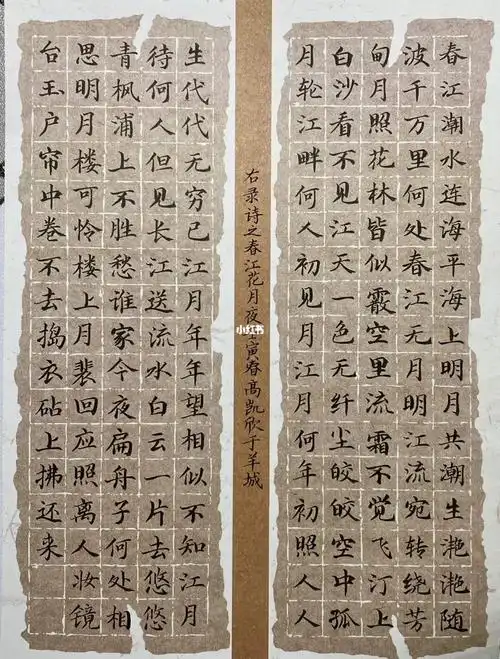 春江潮水连海平海上明月共潮生滟滟随
波千万里何处春江无月明江流宛转绕芳
甸月照花林皆似霰空里流霜不觉飞汀上
白沙看不见江天一色无纤尘皎皎空中孤
月轮江畔何人初见月江月何年初照人人
右录诗之春江花月夜寅春高凯欣于羊城
小红书
生代代无穷已江月年年望相似不知江月
待何人但见长江送流水白云一片去悠悠
青枫浦上不胜愁谁家今夜扁舟子何处相
思明月楼可怜楼上月裴回应照离人妆镜
台玉户帘中卷不去捣衣砧上拂还来